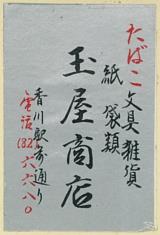 たばこ
文具雑貨
紙袋類
玉屋商店
香川駅前通り
電話(82)六六八〇